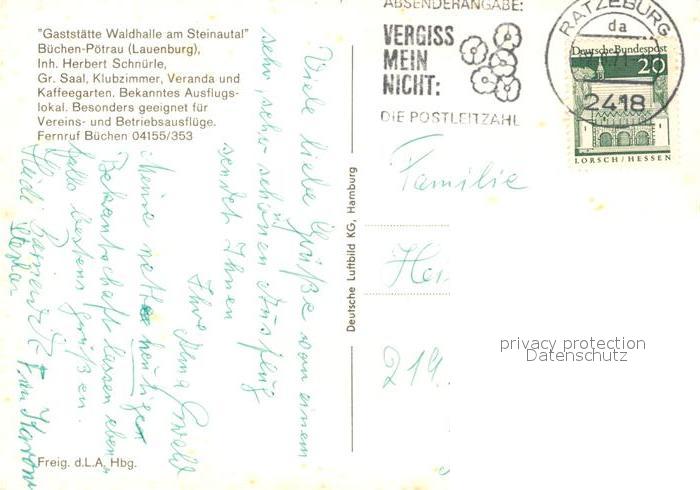 "Gaststätte Waldhalle am Steinautal"
Büchen-Pötrau (Lauenburg),
Inh. Herbert Schnürle,
Gr. Saal, Klubzimmer, Veranda und
Kaffeegarten. Bekanntes Ausflugs-
lokal. Besonders geeignet für
Vereins- und Betriebsausflüge.
Fernruf Büchen 04155/353
Viele liebe Grüße von einem
sehr, sehr schönen Ausflug
sendet Ihnen
Ihre Anna Ewald
Meine netten heutigen
Bekanntschaft lassen eben-
falls bestens grüßen.
Heidi
Freig. d.L.A. Hbg.
Deutsche Luftbild KG, Hamburg
ABSENDERANGABE:
VERGISS
MEIN
NICHT:
DIE POSTLEITZAHL
RATZEBURG
da
2418
Deutsche Bundespost
20
LORSCH/HESSEN
Familie
219
privacy protection
Datenschutz